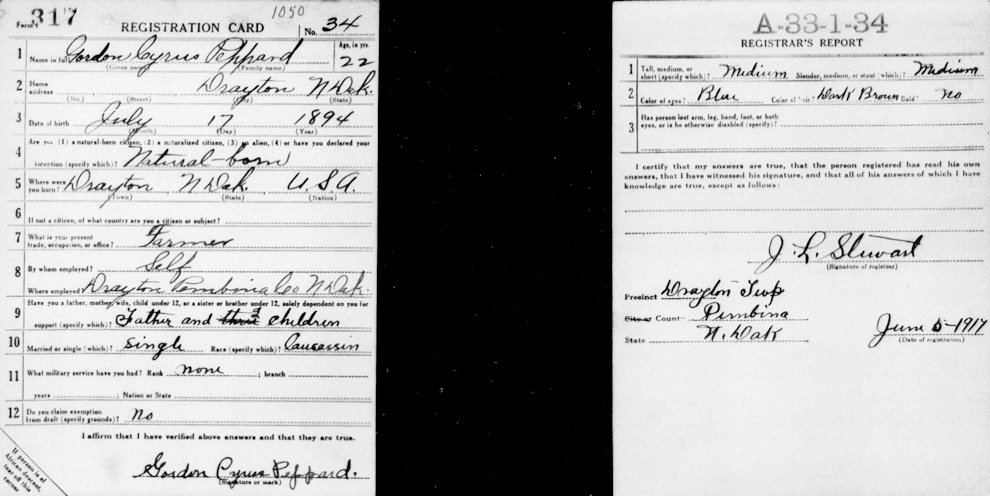 Form 1 317 REGISTRATION CARD 1050 No. 34
1 Name in full Gordon Cyrus Peppard Age, in yrs. 22
(Given name) (Family name)
2 Home address Drayton N Dak.
(No.) (Street) (City) (State)
3 Date of birth July 17 1894
(Month) (Day) (Year)
4 Are you (1) a natural-born citizen, (2) a naturalized citizen, (3) an alien, (4) or have you declared your
intention (specify which)? Natural-born
5 Where were you born? Drayton N Dak. U.S.A.
(Town) (State) (Nation)
6 If not a citizen, of what country are you a citizen or subject?
7 What is your present trade, occupation, or office? Farmer
8 By whom employed? Self
Where employed? Drayton Pembina Co N Dak.
9 Have you a father, mother, wife, child under 12, or a sister or brother under 12, solely dependent on you for
support (specify which)? Father and three 2 children
10 Married or single (which)? Single Race (specify which)? Caucassin
11 What military service have you had? Rank none ; branch
years ; Nation or State
12 Do you claim exemption from draft (specify grounds)? No
I affirm that I have verified above answers and that they are true.
Gordon Cyrus Peppard.
(Signature or mark)
If person is of African descent, tear off this corner
A-33-1-34
REGISTRAR'S REPORT
1 Tall, medium, or short (specify which)? Medium Slender, medium, or stout (which)? Medium
2 Color of eyes? Blue Color of hair? Dark Brown Bald? No
3 Has person lost arm, leg, hand, foot, or both eyes, or is he otherwise disabled (specify)?
I certify that my answers are true, that the person registered has read his own
answers, that I have witnessed his signature, and that all of his answers of which I have
knowledge are true, except as follows:
J. L. Stewart
(Signature of registrar)
Precinct Drayton Twp
City or County Pembina
State N. Dak
June 5-1917
(Date of registration)